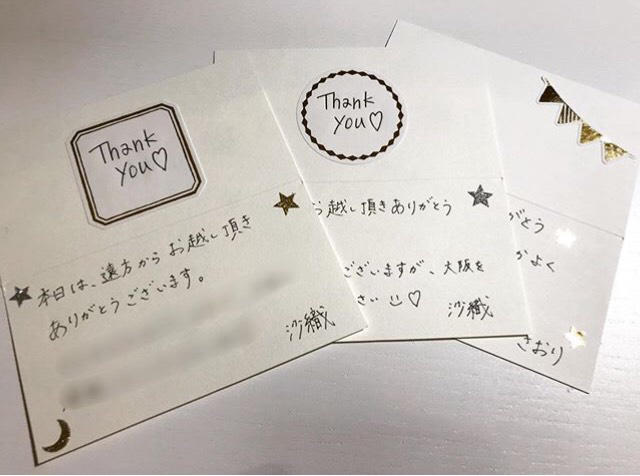 Thank
you♡
本日は、遠方からお越し頂き
ありがとうございます。
沙織
Thank
you♡
お越し頂きありがとう
ございますが、大阪を
さい
沙織
がとう
かよく
さおり